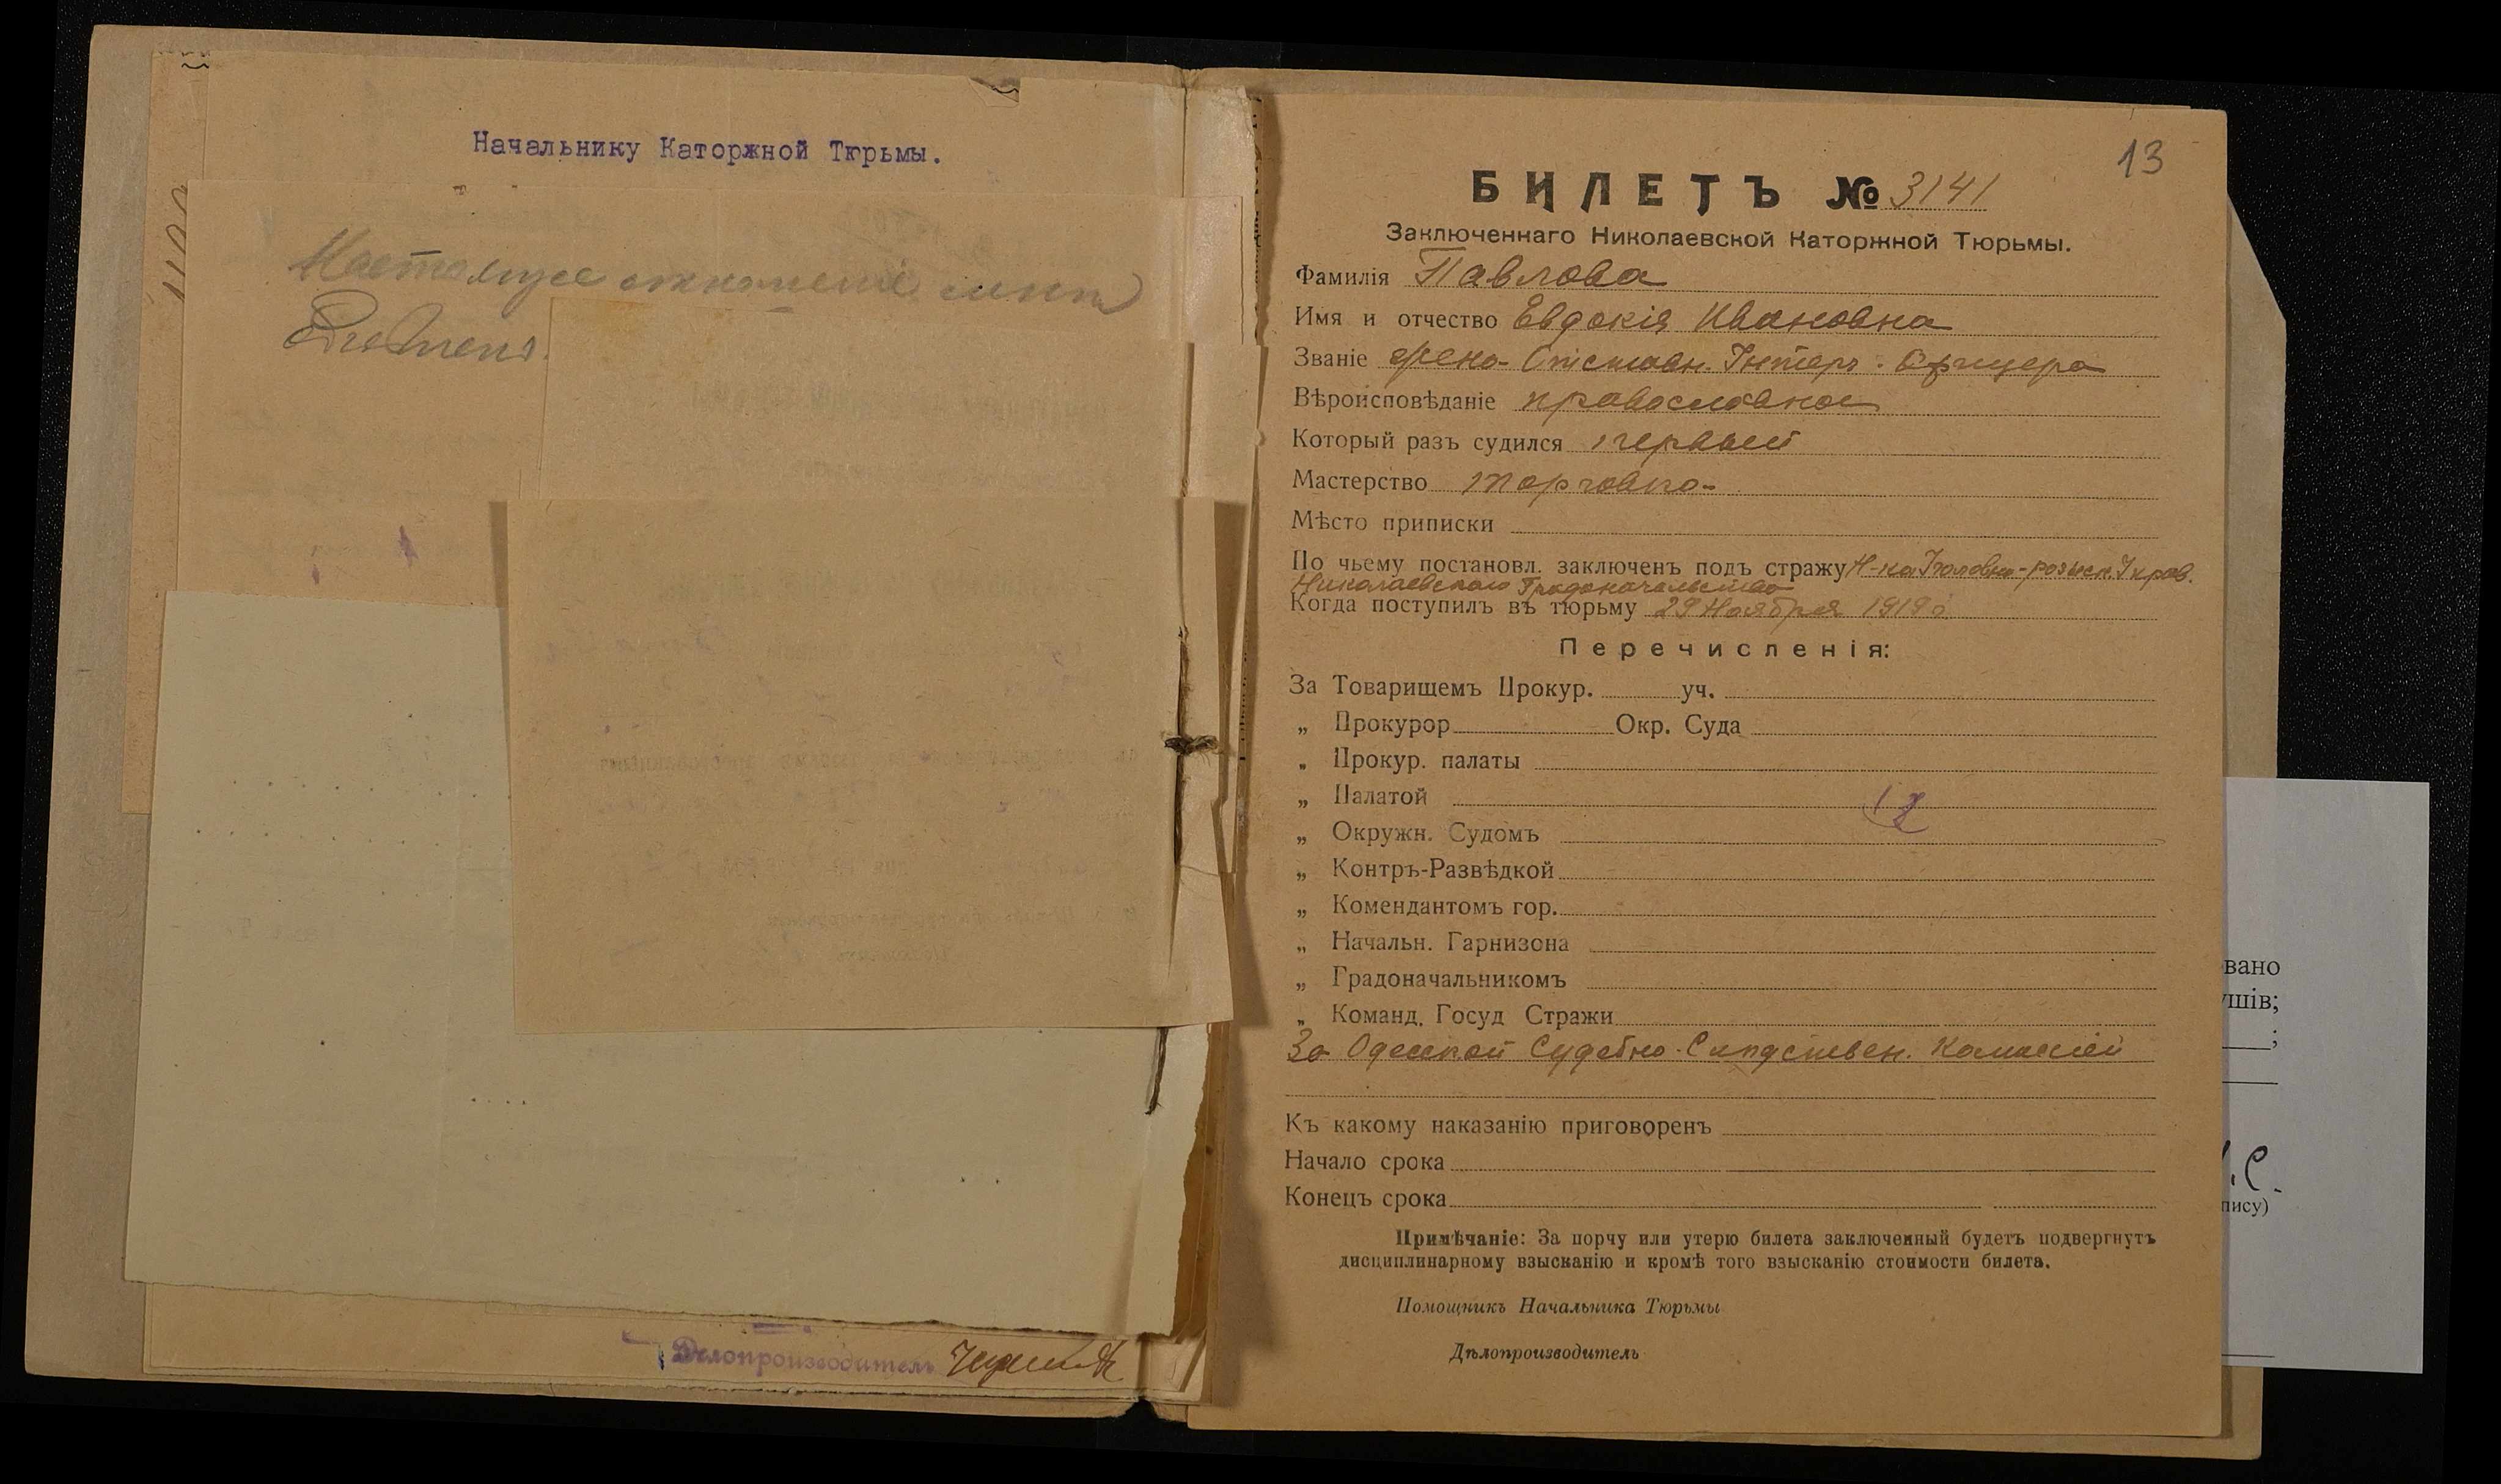 Начальнику Каторжной Тюрьмы.
Настоящее отношеніе
Делопроизводитель
13
БИЛЕТЪ № 3141
Заключеннаго Николаевской Каторжной Тюрьмы.
Фамилія Павлова
Имя и отчество Евдокія Ивановна
Званіе жена Унтеръ-Офицера
Вѣроисповѣданіе православное
Который разъ судился первый
Мастерство торговка
Мѣсто приписки
По чьему постановл. заключенъ подъ стражу Н-ка Уголовно-розыск. Управ.
Николаевскаго Градоначальства
Когда поступилъ въ тюрьму 29 Ноября 1919 г.
Перечисленія:
За Товарищемъ Прокур. уч.
„ Прокурор Окр. Суда
„ Прокур. палаты
„ Палатой
„ Окружн. Судомъ
„ Контръ-Развѣдкой
„ Комендантомъ гор.
„ Начальн. Гарнизона
„ Градоначальникомъ
„ Команд. Госуд Стражи
За Одесской Судебно-Слѣдствен. Комиссіей
Къ какому наказанію приговоренъ
Начало срока
Конецъ срока
Примѣчаніе: За порчу или утерю билета заключенный будетъ подвергнутъ
дисциплинарному взысканію и кромѣ того взысканію стоимости билета.
Помощникъ Начальника Тюрьмы
Дѣлопроизводитель
вано
ушів;
;
.С.
пису)